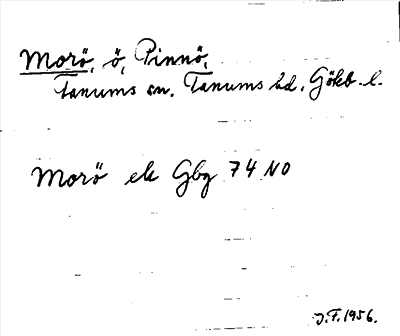 Morö, ö, Pinnö,
Tanums sn. Tanums hd. Gökb. l.
Morö ek Gbg 74 NO
J.F. 1956.